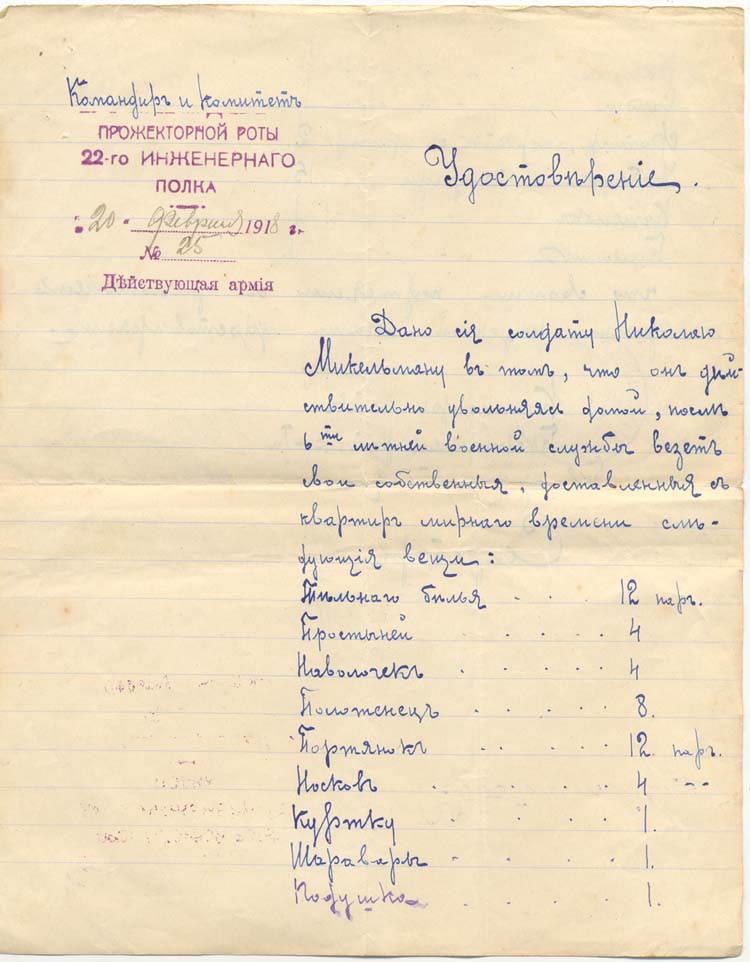 Командиръ и комитетъ
ПРОЖЕКТОРНОЙ РОТЫ
22-го ИНЖЕНЕРНАГО
ПОЛКА
„ 20 “ февраля 1918 г.
№ 25
Дѣйствующая армія
Удостовѣреніе.
Дано сія солдату Николаю
Микельману въ томъ, что онъ дѣй-
ствительно увольняясь домой, послѣ
6ти лѣтней военной службы везетъ
свои собственныя, доставленныя съ
квартиръ мирнаго времени слѣ-
дующія вещи:
Тѣльнаго бѣлья . . 12 паръ.
Простыней . . . . 4
Наволочекъ . . . . 4
Полотенецъ . . . . 8.
Портянокъ . . . . 12 паръ.
Носковъ . . . . 4 -"-
Куртку . . . . 1.
Шаравары . . . . 1.
Подушка . . . . 1.